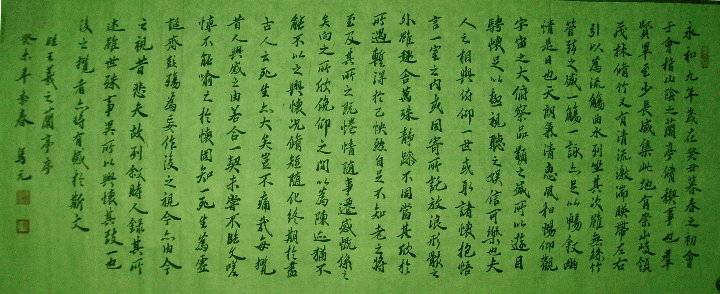 永和九年歲在癸丑暮春之初會
于會稽山陰之蘭亭脩稧事也羣
賢畢至少長咸集此地有崇山峻領
茂林脩竹又有清流激湍映帶左右
引以為流觴曲水列坐其次雖無絲竹
管弦之盛一觴一詠亦足以暢叙幽
情是日也天朗氣清惠風和暢仰觀
宇宙之大俯察品類之盛所以遊目
騁懷足以極視聽之娛信可樂也夫
人之相與俯仰一世或取諸懷抱悟
言一室之內或因寄所託放浪形骸之
外雖趣舍萬殊靜躁不同當其欣於
所遇輙得於己怏然自足不知老之將
至及其所之既惓情隨事遷感慨係之
矣向之所欣俛仰之間以為陳迹猶不
能不以之興懷況脩短隨化終期於盡
古人云死生亦大矣豈不痛哉每攬
昔人興感之由若合一契未嘗不臨文嗟
悼不能喻之於懷固知一死生為虛
誕齊彭殤為妄作後之視今亦由今
之視昔悲夫故列叙時人錄其所
述雖世殊事異所以興懷其致一也
後之攬者亦將有感於斯文
臨王羲之蘭亭序
癸未年春